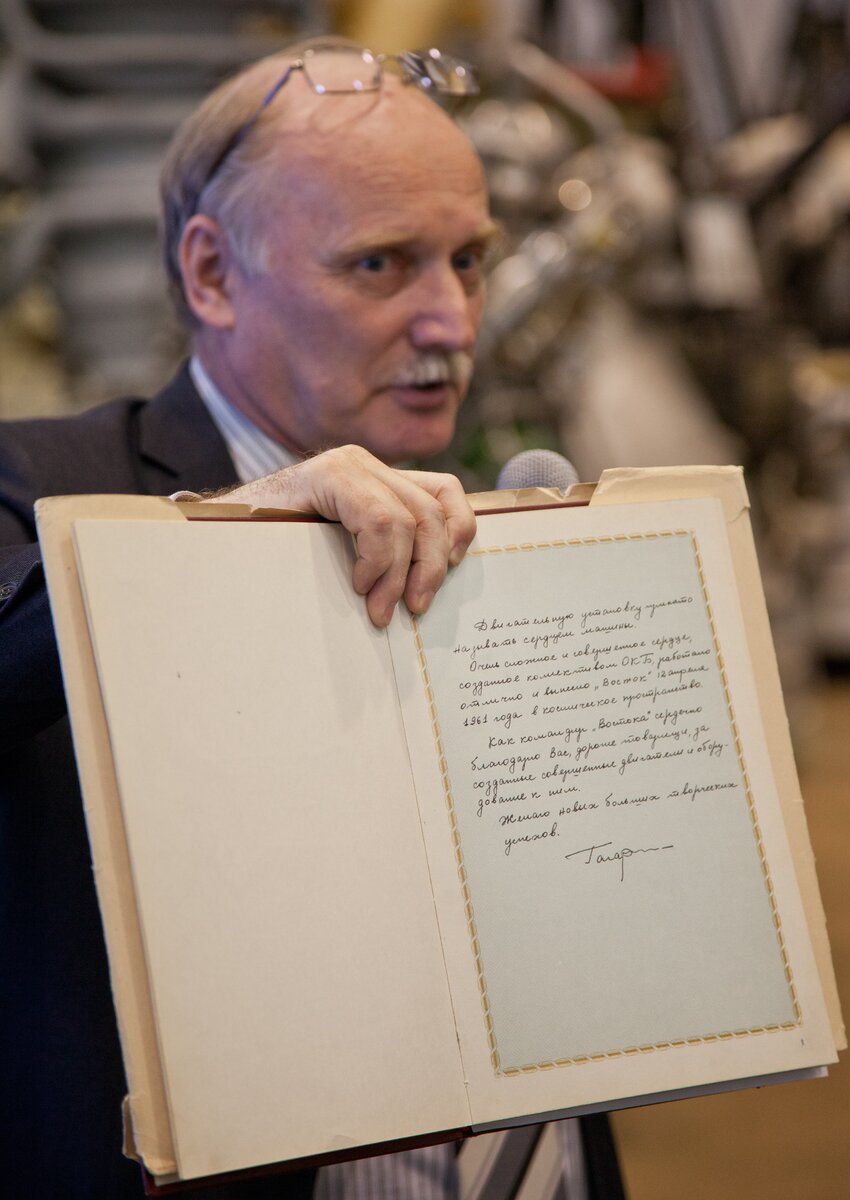 Двигательную установку принято
называть сердцем машины.
Очень сложное и совершенное сердце,
созданное коллективом ОКБ, работало
отлично и вынесло „Восток" 12 апреля
1961 года в космическое пространство.
Как командир „Востока" сердечно
благодарю Вас, дорогие товарищи, за
созданные совершенные двигатели и обору-
дование к ним.
Желаю новых больших творческих
успехов.
Гагарин
1